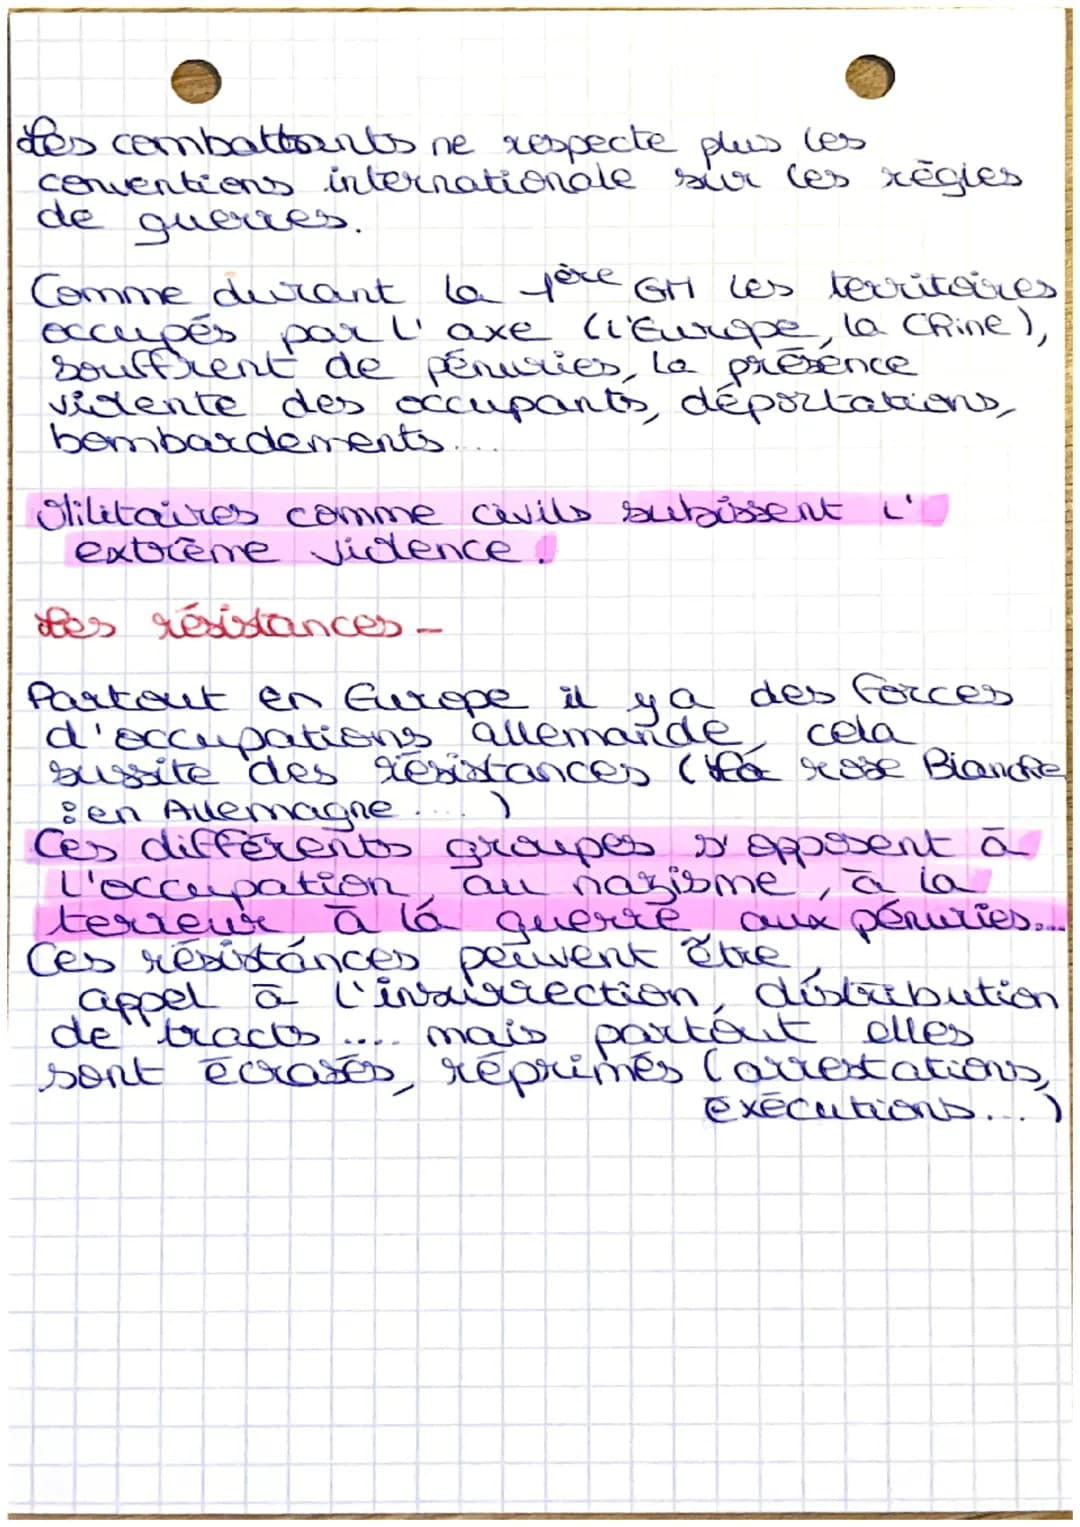 Les combattants ne respecte plus les
conventions internationale sur les règles
de guerres.
Comme durant la 1ère GM les territoires
occupés par l'axe (l'Europe, la Chine),
souffrent de pénuries, la présence
violente des occupants, déportations,
bombardements...
Militaires comme civils subissent l'
extrême violence.
Les résistances -
Partout en Europe il y a des forces
d'occupations allemande, cela
sussite des résistances (la rose Blanche
: en Allemagne....)
Ces différents groupes s'opposent à
l'occupation, au nazisme, à la
terreur à la guerre aux pénuries...
Ces résistances peuvent être,
appel à l'insurrection, distribution
de tracts.... mais partout elles
sont écrasés, réprimés (arrestations,
exécutions...)